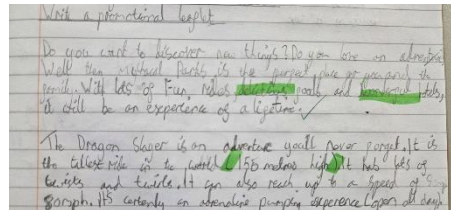 Write a promotional leaflet
Do you want to discover new things? Do you love an adventure
Well then Mystical Parks is the perfect place for you and the
family. With lots of Fun rides, goods and hotels,
it still be an experience of a lifetime.
The Dragon Slayer is an adventure youll never forget. It is
the tallest ride in the world 156 metres high It has lots of
twists and twirls. It can also reach up to a speed of
80mph. Its certenly an adrenaline pumping experience (open all day